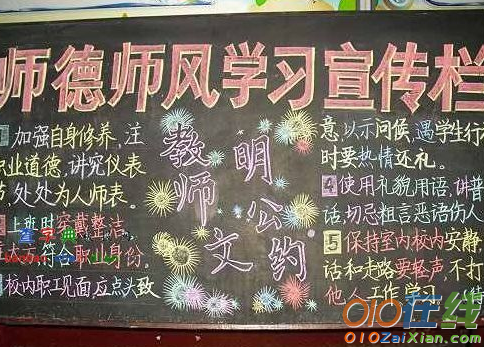 师德师风学习宣传栏
教师文
明公约
加强自身修养,注
职业道德,讲究仪表
节,处处为人师表。
上班时穿戴整洁,
符合职工身份。
校内职工见面应点头致
意,以示问候,遇学生行
时要热情还礼。
4 使用礼貌用语,讲普
话,切忌粗言恶语伤人
5 保持室内校内安静,
话和走路要轻声,不打
他人工作、学习。
查字典
010在线
010ZaiXian.com